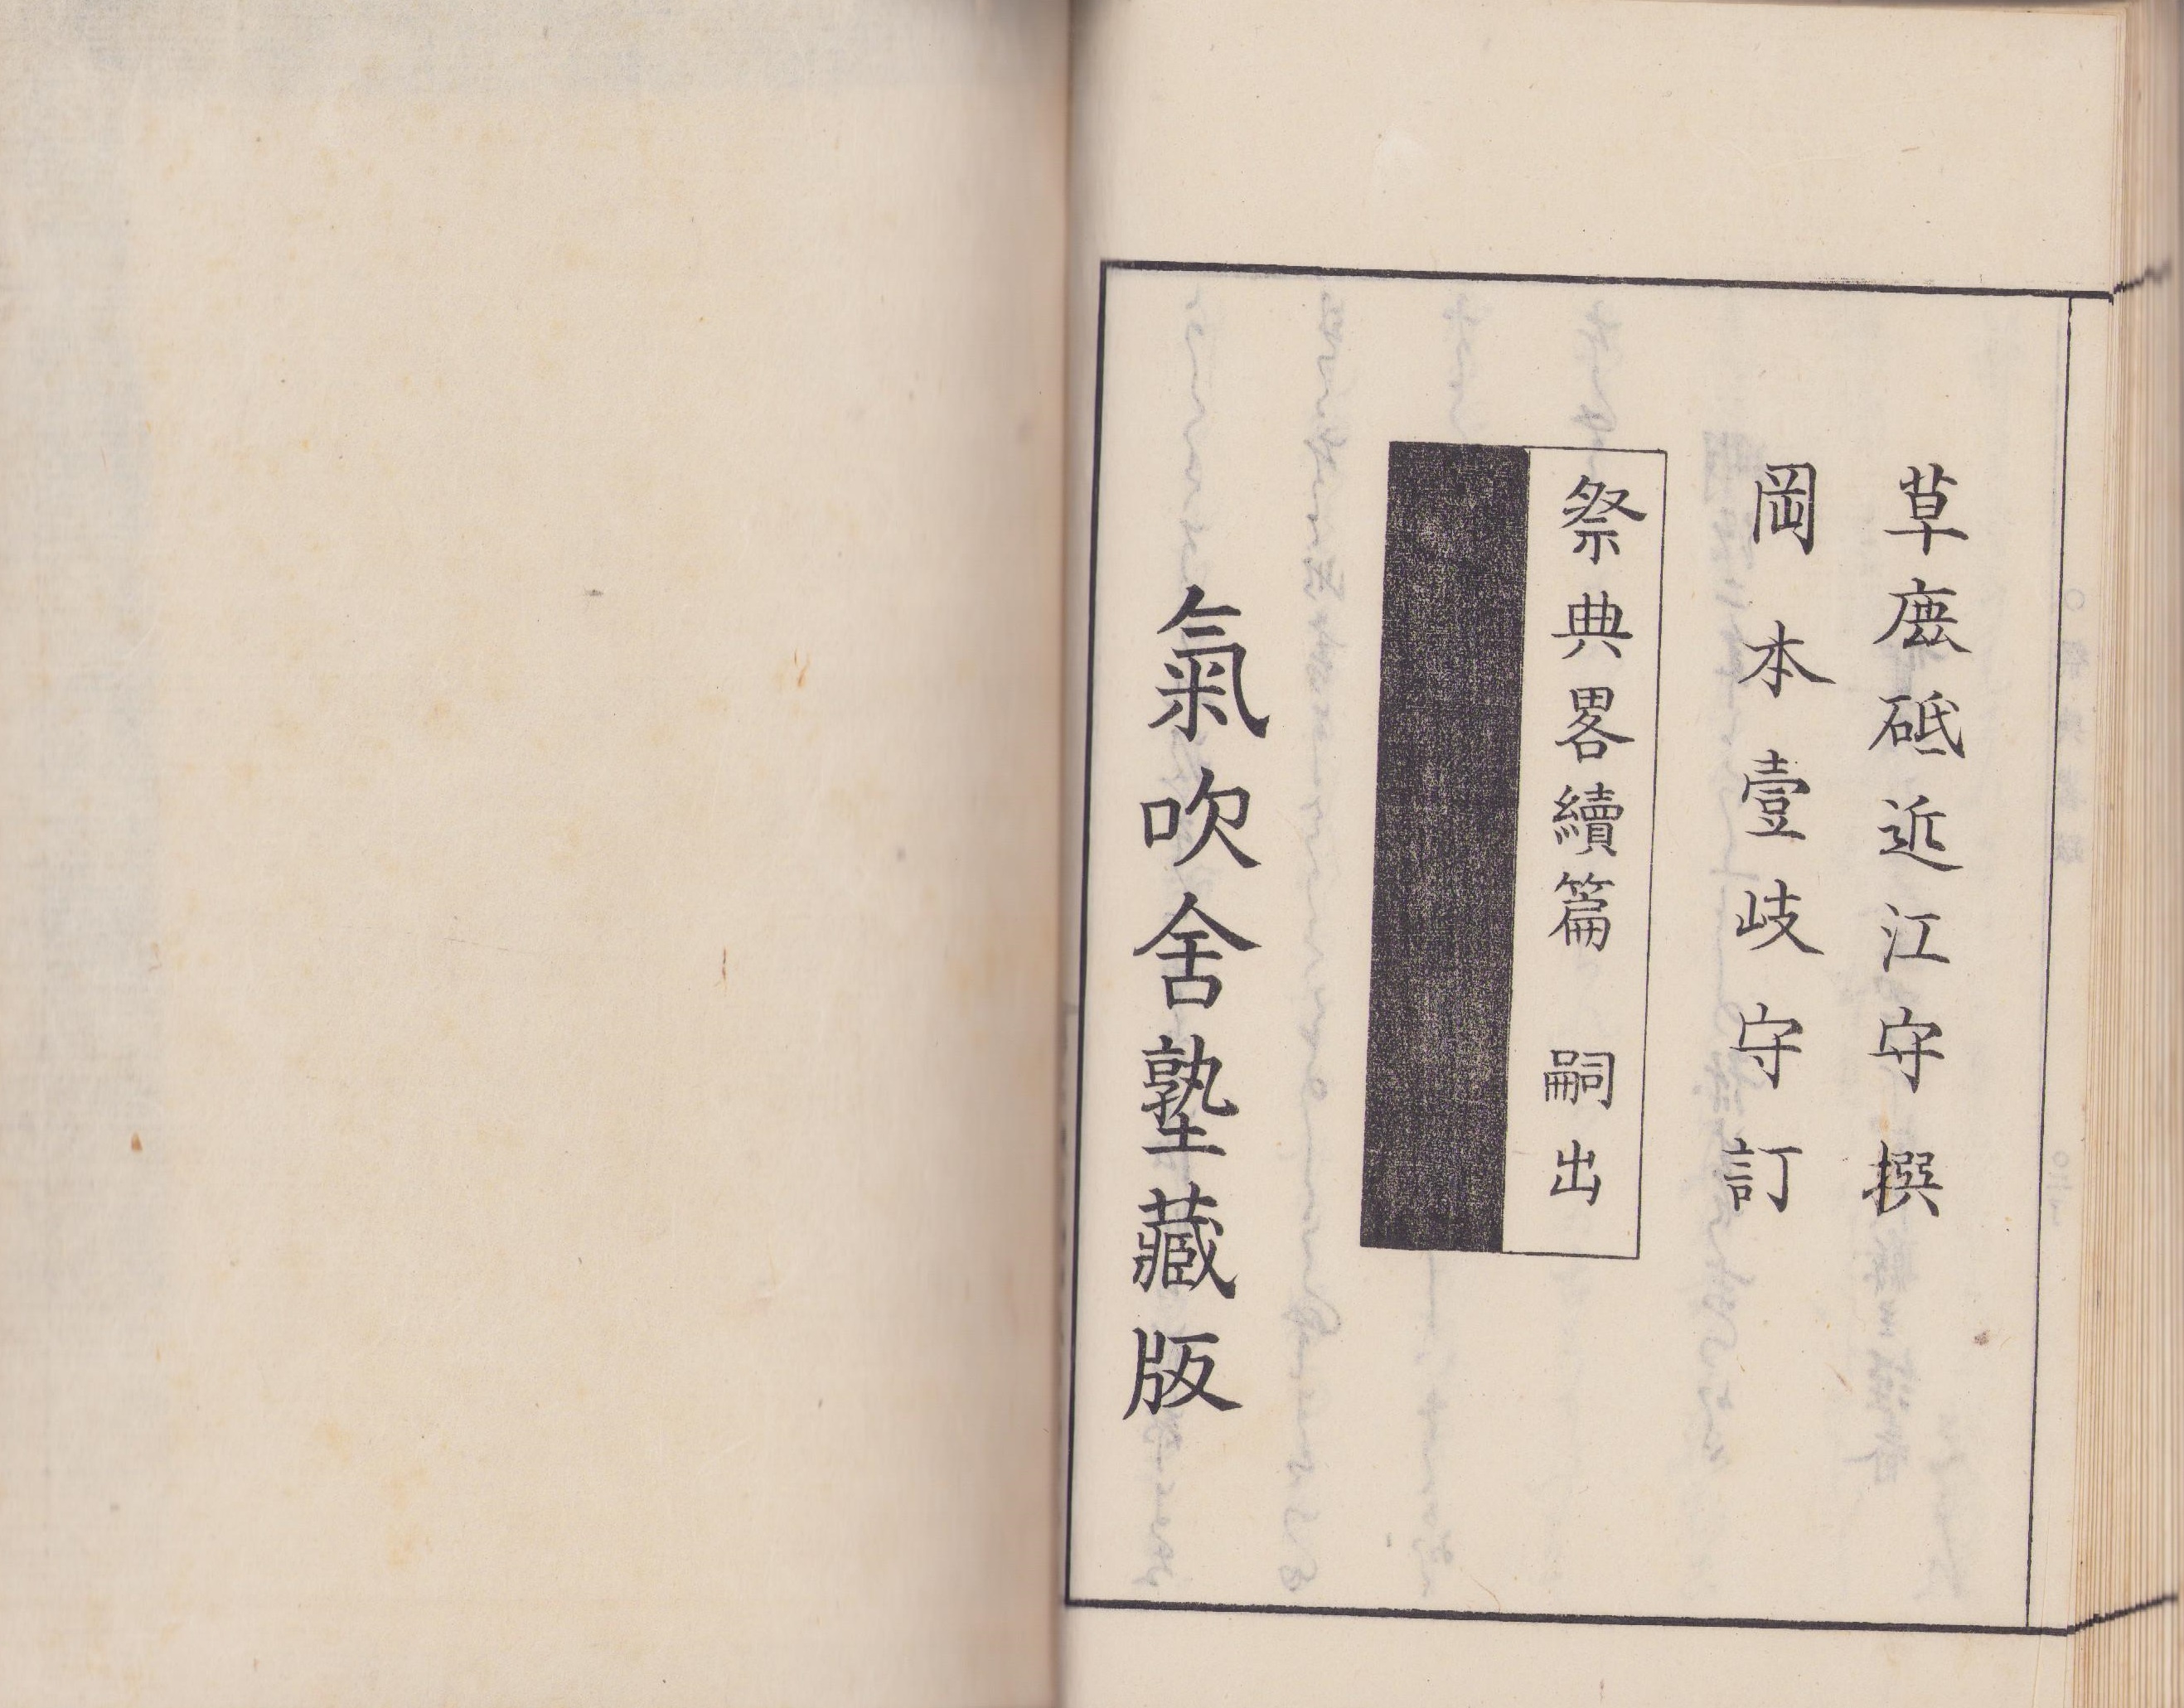 草鹿砥近江守撰
岡本壹岐守訂
祭典畧續篇　嗣出
氣吹舍塾藏版